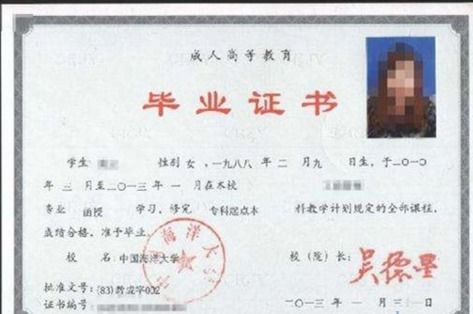 成人高等教育
毕业证书
学生 性别 女 ,一九八八年 二 月 九 日生,于二〇一〇
年 三 月至二〇一三年 一 月在本校
专业 函授 学习,修完 专科起点本 科教学计划规定的全部课程,
成绩合格,准予毕业。
校 名: 中国海洋大学 校(院)长: 吴德星
批准文号: (83)教成字002
证书编号: 二〇一三年 一 月